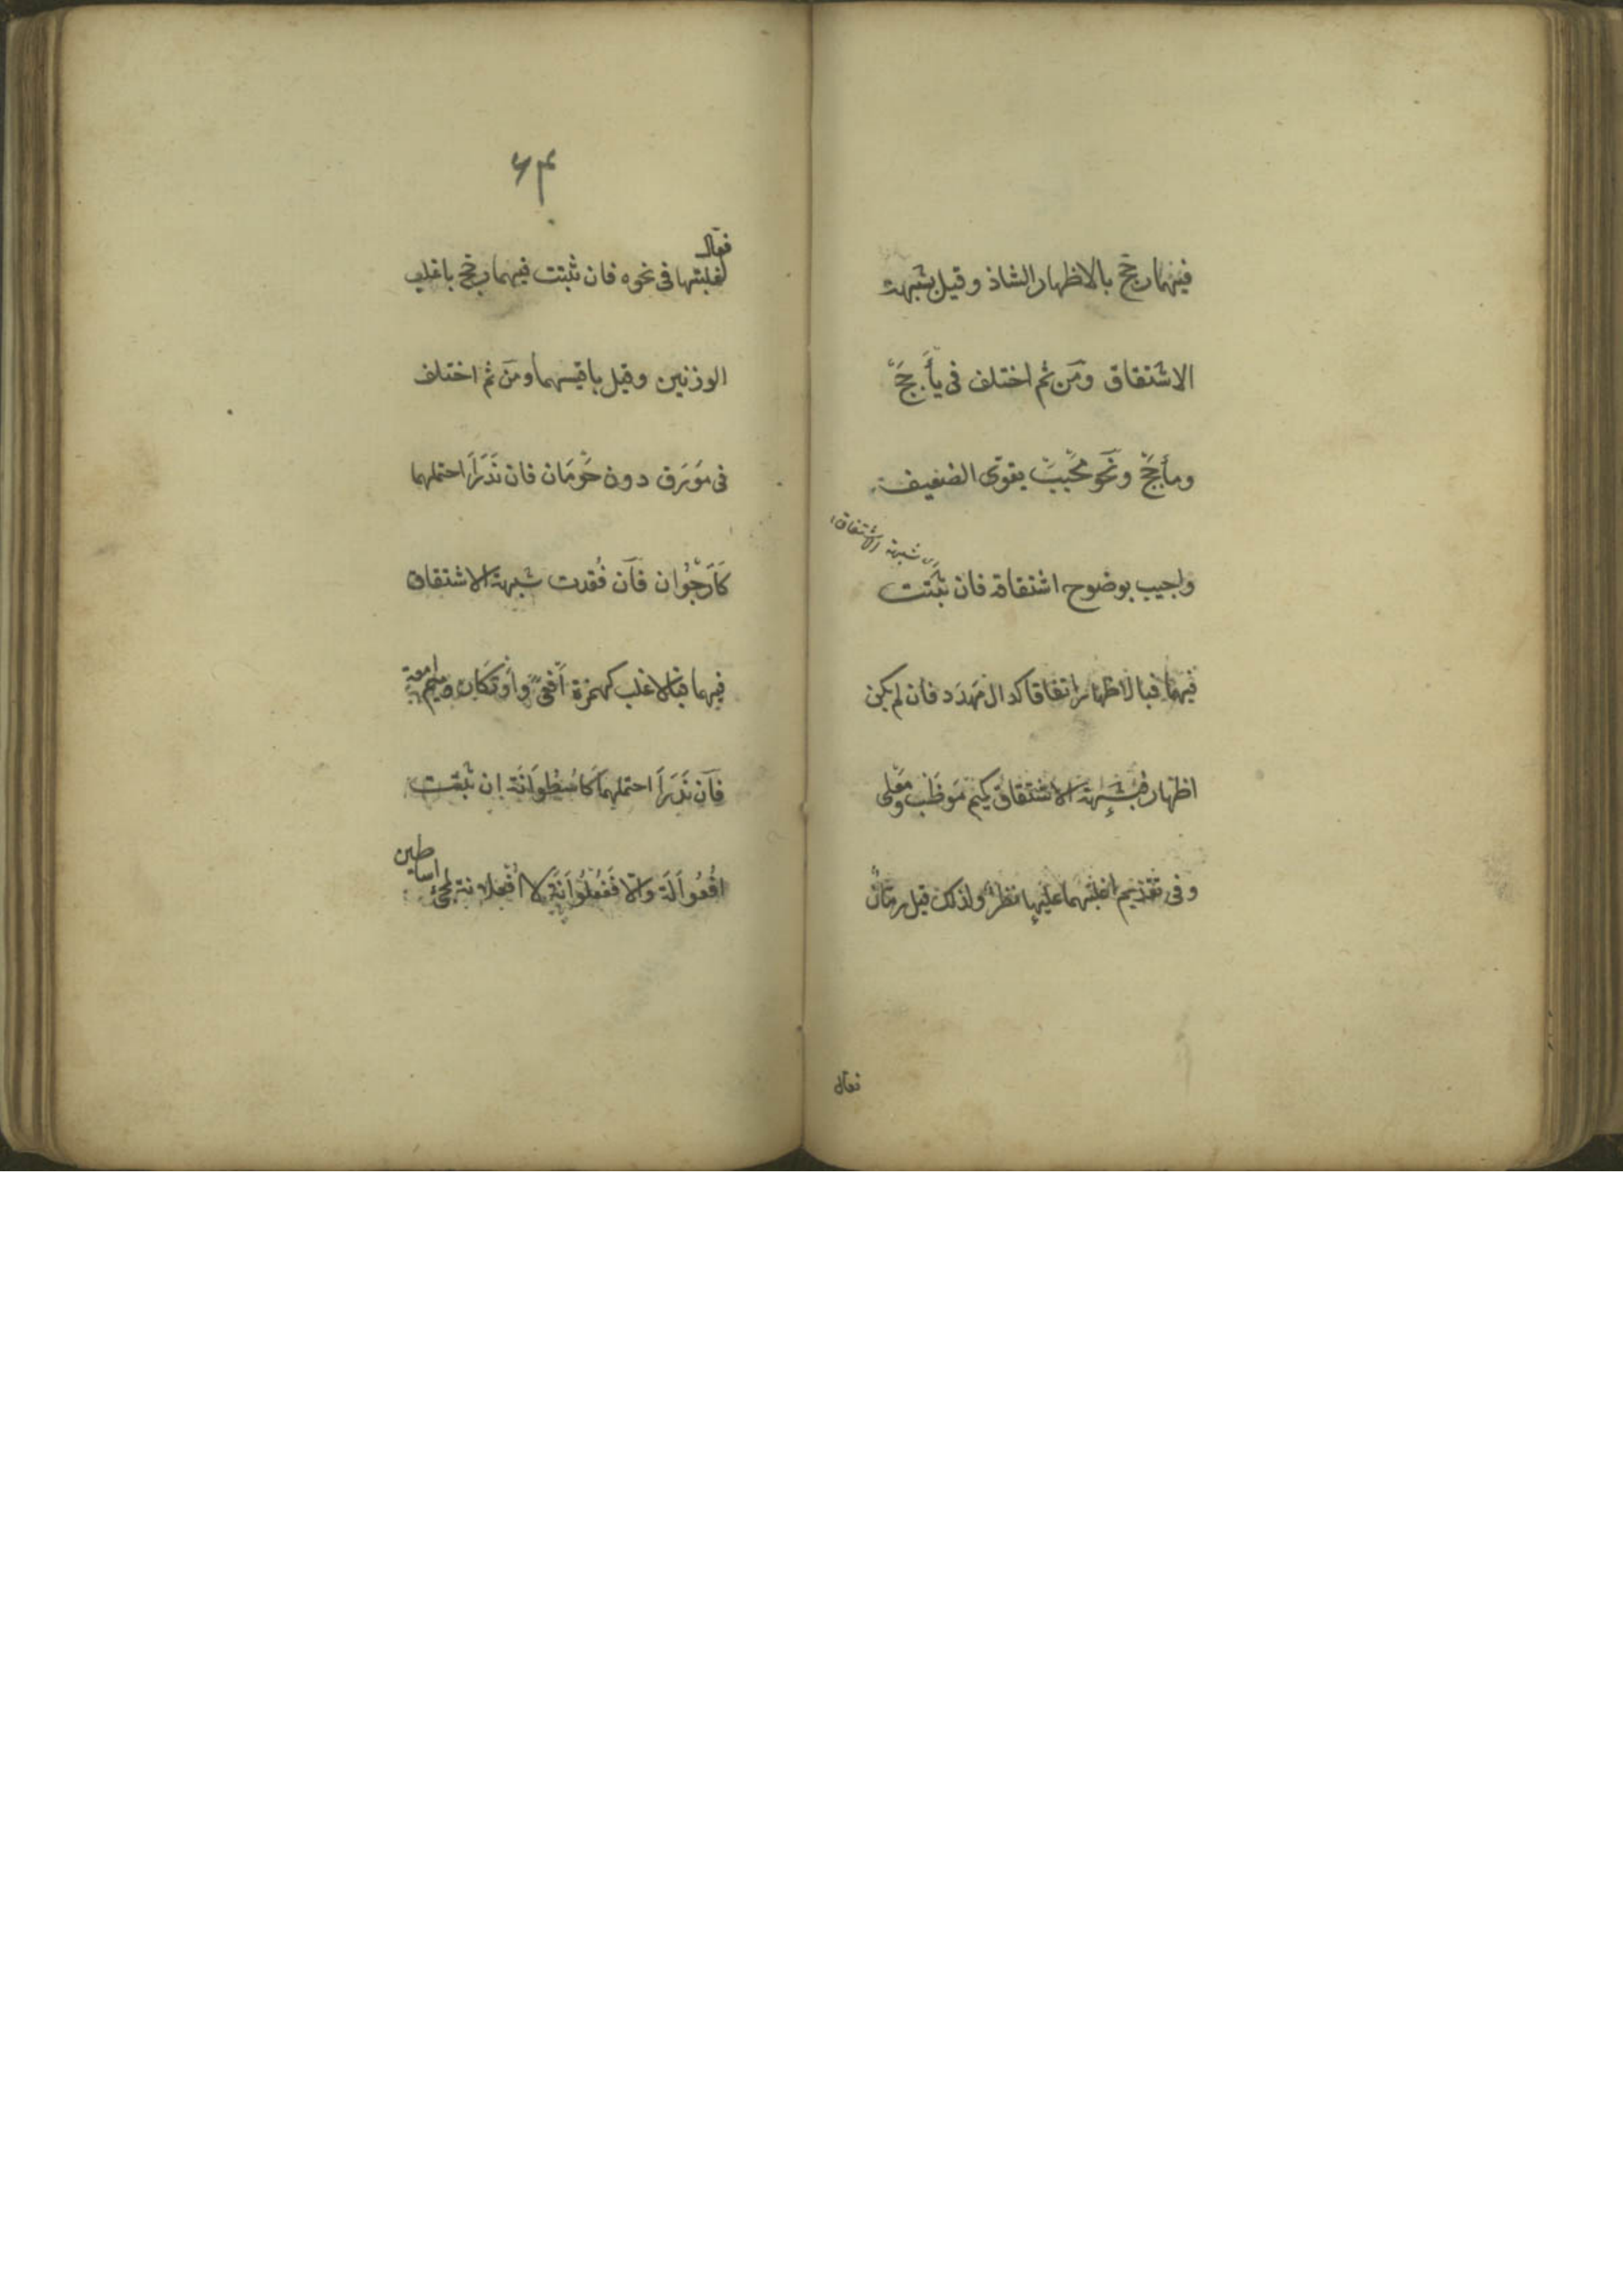 فيهما رجح بالاظهار الشاذ وقيل بشبهة
الاشتقاق ومن ثم اختلف فى يأجج
ومأجج ونحو محبب يقوى الضعيف
واجيب بوضوح اشتقاقه فان ثبتت
شبهة الاشتقاق
فيهما فبالاظهار اتفاقا كدال مهدد فان لم يكن
اظهار فبشبهة الاشتقاق كميم موظب ومعلى
وفى تقديم اغلبهما عليها نظر ولذلك قيل رمان
فعال
۶۴
فعال
لغلبتها فى نحوه فان ثبتت فيهما رجح باغلب
الوزنين وقيل باقيسهما ومن ثم اختلف
فى مورق دون حومان فان ندرا احتملهما
كارجوان فان فقدت شبهة الاشتقاق
فيهما فبالاغلب كهمزة افعى واوتكان وميم امعة
فان ندرا احتملهما كاسطوانة ان ثبتت
افعوالة والا ففعلوانة لا افعلانة لمجئ
اساطين